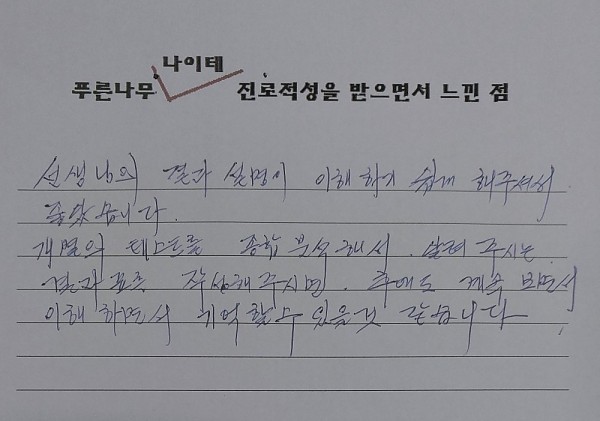 나이테
푸른나무 진로적성을 받으면서 느낀 점
선생님의 결과 설명이 이해하기 쉽게 해주셔서
좋았습니다.
개별의 테스트를 종합분석해서 알려주시는
결과표를 작성해주시면. 후에도 계속 보면서
이해하면서 기억할 수 있을것 같습니다